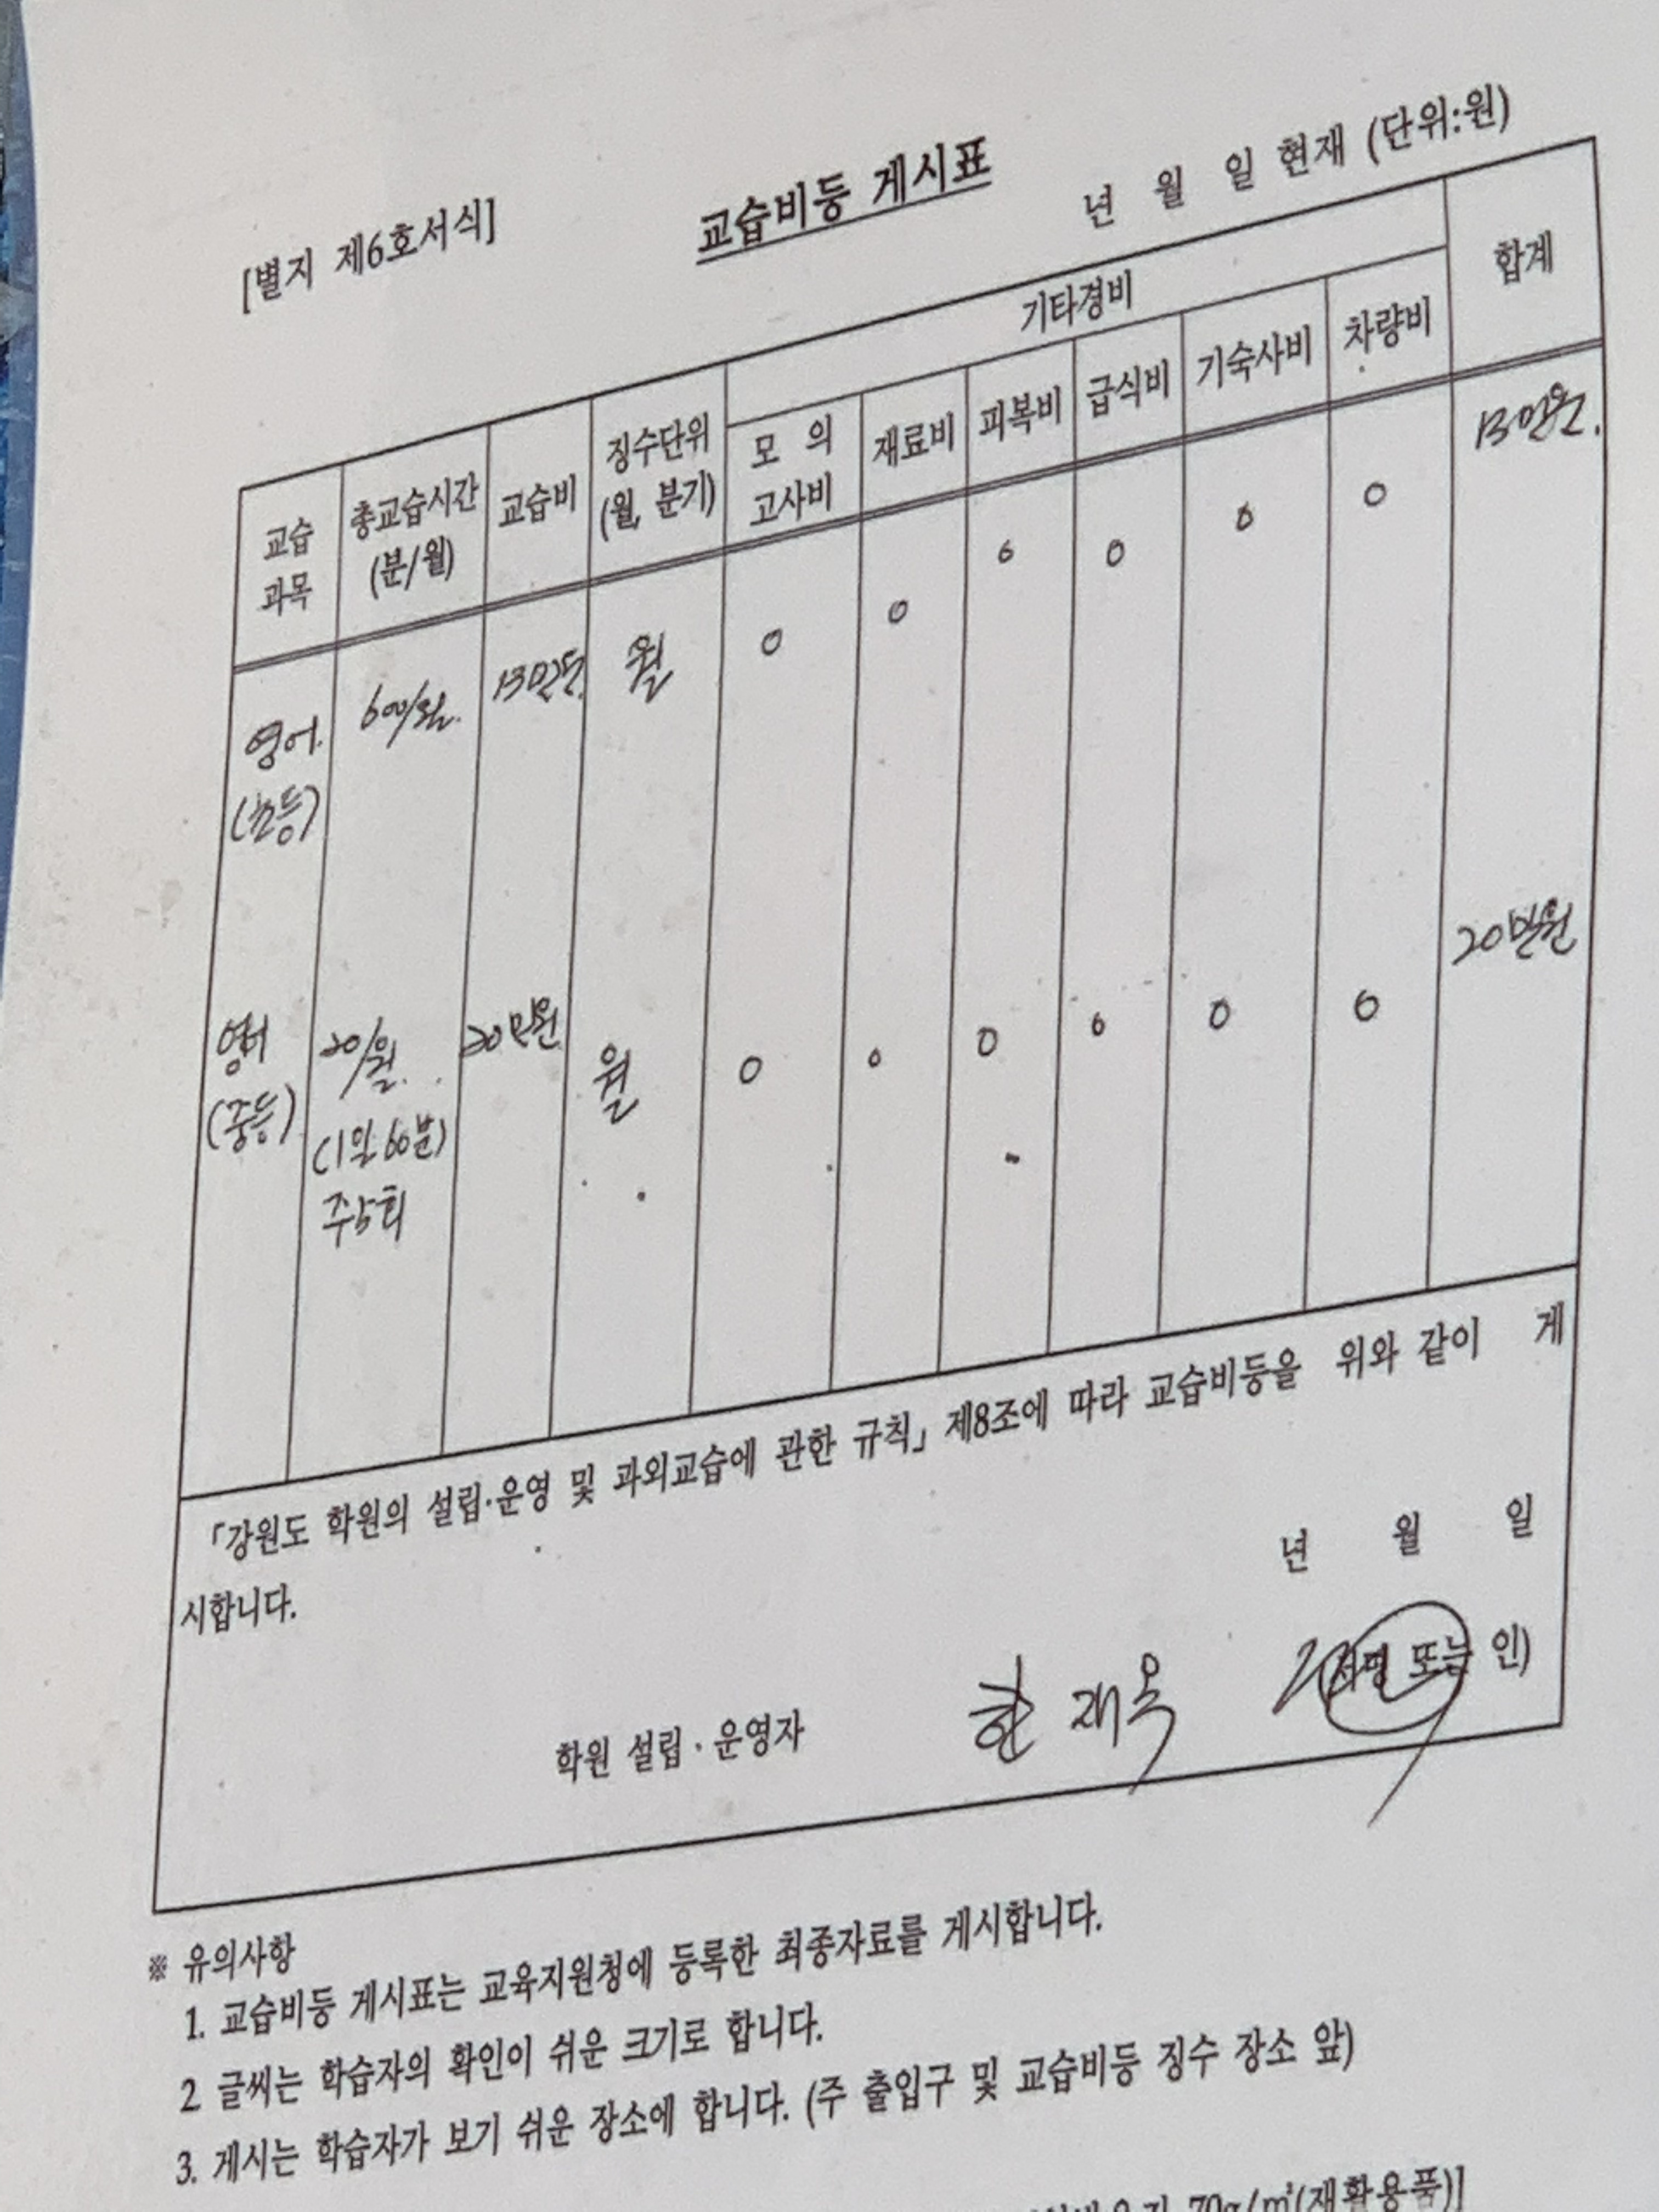 [별지 제6호서식]
교습비등 게시표
년 월 일 현재 (단위:원)
교습
과목
총교습시간
(분/월)
교습비
징수단위
(월, 분기)
기타경비
모 의
고사비
재료비
피복비
급식비
기숙사비
차량비
합계
영어.
(초등)
600/월.
13만원.
월
0
0
0
0
0
0
13만원.
영어
(중등)
20/월.
(1일 60분)
주5회
20만원
월
0
0
0
0
0
0
20만원
「강원도 학원의 설립·운영 및 과외교습에 관한 규칙」 제8조에 따라 교습비등을 위와 같이 게
시합니다.
년 월 일
학원 설립 · 운영자 한 재옥 (서명 또는 인)
※ 유의사항
1. 교습비등 게시표는 교육지원청에 등록한 최종자료를 게시합니다.
2. 글씨는 학습자의 확인이 쉬운 크기로 합니다.
3. 게시는 학습자가 보기 쉬운 장소에 합니다. (주 출입구 및 교습비등 징수 장소 앞)
70g/㎡(재활용품)]